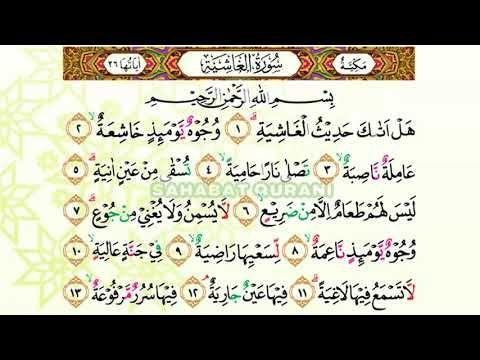 مَكِيَّةٌ سُوْرَةُ الْغَاشِيَةِ اٰيَاتُهَا ٢٦
بِسْمِ اللّٰهِ الرَّحْمٰنِ الرَّحِيْمِ
هَلْ اَتٰىكَ حَدِيْثُ الْغَاشِيَةِۗ ١ وُجُوْهٌ يَّوْمَىِٕذٍ خَاشِعَةٌۙ ٢
عَامِلَةٌ نَّاصِبَةٌۙ ٣ تَصْلٰى نَارًا حَامِيَةًۙ ٤ تُسْقٰى مِنْ عَيْنٍ اٰنِيَةٍۗ ٥
SAHABAT QURANI
لَيْسَ لَهُمْ طَعَامٌ اِلَّا مِنْ ضَرِيْعٍۙ ٦ لَّا يُسْمِنُ وَلَا يُغْنِيْ مِنْ جُوْعٍۗ ٧
وُجُوْهٌ يَّوْمَىِٕذٍ نَّاعِمَةٌۙ ٨ لِّسَعْيِهَا رَاضِيَةٌۙ ٩ فِيْ جَنَّةٍ عَالِيَةٍۙ ١٠
لَّا تَسْمَعُ فِيْهَا لَاغِيَةًۗ ١١ فِيْهَا عَيْنٌ جَارِيَةٌۘ ١٢ فِيْهَا سُرُرٌ مَّرْفُوْعَةٌۙ ١٣